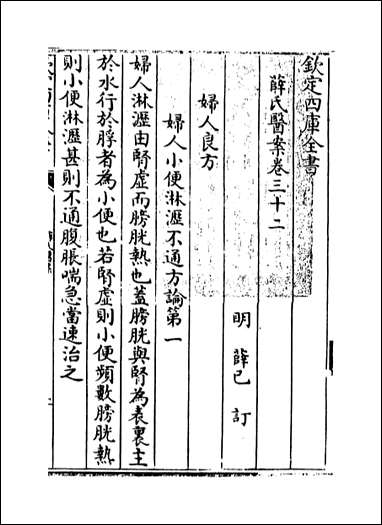 欽定四庫全書
薛氏醫案卷三十二
明 薛己 訂
婦人良方
婦人小便淋瀝不通方論第一
婦人淋瀝由腎虛而膀胱熱也蓋膀胱與腎為表裏主
於水行於脬者為小便也若腎虛則小便頻數膀胱熱
則小便淋瀝甚則不通腹脹喘急當速治之